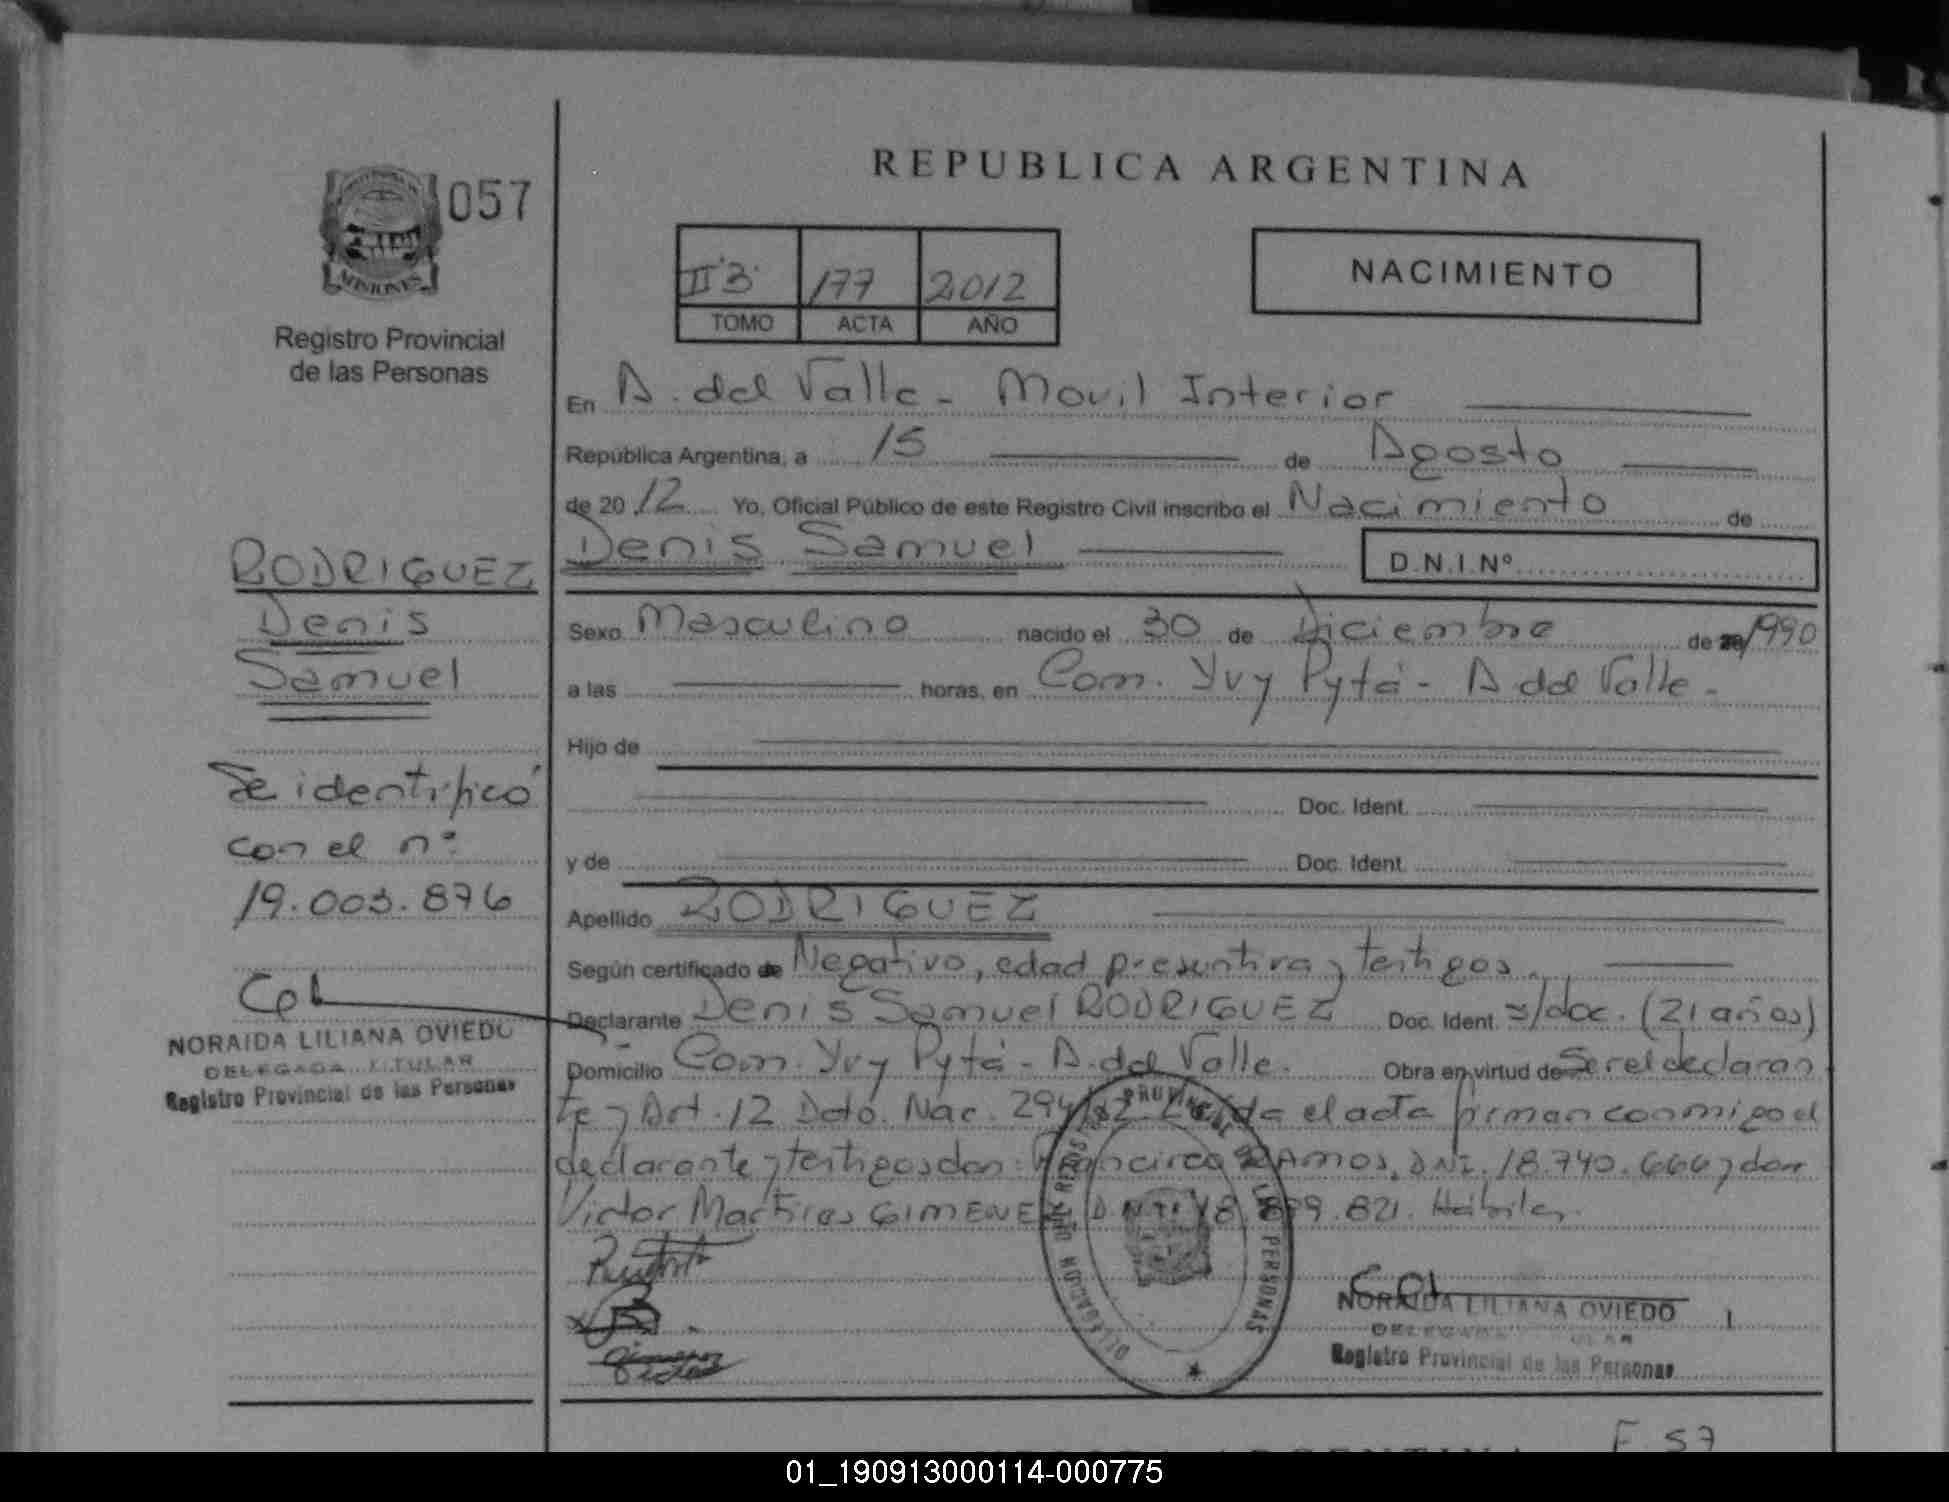 REPUBLICA ARGENTINA
057
MISIONES
Registro Provincial
de las Personas
II"B" 177 2012
TOMO ACTA AÑO
NACIMIENTO
En A. del Valle - Movil Interior
República Argentina, a 15 de Agosto
de 20 12 Yo, Oficial Público de este Registro Civil inscribo el Nacimiento de
Denis Samuel D.N.I.Nº
Sexo Masculino nacido el 30 de Diciembre de 1990
a las horas, en Com. Yvy Pytá - A del Valle -
Hijo de
Doc. Ident.
y de Doc. Ident.
Apellido RODRIGUEZ
Según certificado de Negativo, edad presuntiva y testigos.
Declarante Denis Samuel RODRIGUEZ Doc. Ident. s/doc. (21 años)
Domicilio Com. Yvy Pytá - A. del Valle. Obra en virtud de Ser el declaran
te y Art. 12 Dcto. Nac. 294/82. Leída el acta firman conmigo el
declarante y testigos don: Francisco RAMOS, DNI. 18.740.666 y don
Victor Martires GIMENEZ D.N.I. 18.899.821. Hábiles.
RODRIGUEZ
Denis
Samuel
Se identificó
con el nº
19.003.876
NORAIDA LILIANA OVIEDO
DELEGADA TITULAR
Registro Provincial de las Personas
NORAIDA LILIANA OVIEDO
DELEGADA
Registro Provincial de las Personas
F 57
01_190913000114-000775